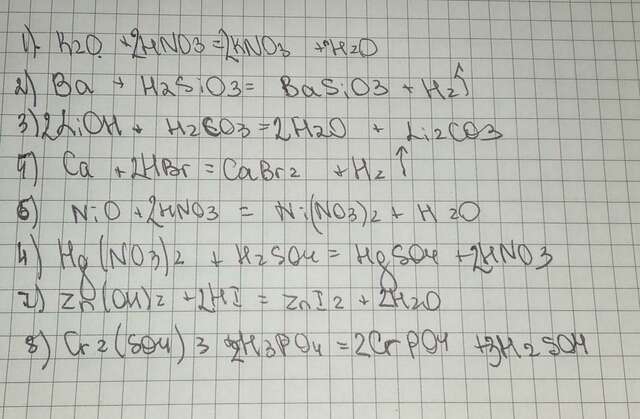 1) K2O + 2HNO3 = 2KNO3 + H2O
2) Ba + H2SiO3 = BaSiO3 + H2↑
3) 2LiOH + H2CO3 = 2H2O + Li2CO3
4) Ca + 2HBr = CaBr2 + H2↑
5) NiO + 2HNO3 = Ni(NO3)2 + H2O
4) Hg(NO3)2 + H2SO4 = HgSO4 + 2HNO3
7) Zn(OH)2 + 2HI = ZnI2 + 2H2O
8) Cr2(SO4)3 + 2H3PO4 = 2CrPO4 + 3H2SO4